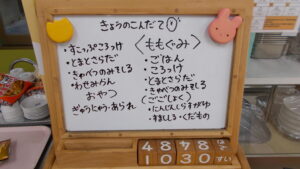 きょうのこんだて
・すこっぷころっけ
・とまとさらだ
・きゃべつのみそしる
・わせみかん
おやつ
ぎゅうにゅう・あられ
〈ももぐみ〉
・ごはん
・ころっけ
・とまとさらだ
・きゃべつのみそしる
(ごごしょく)
・にんじんしらすがゆ
・すましじる・くだもの
8 4 4 8
10 30